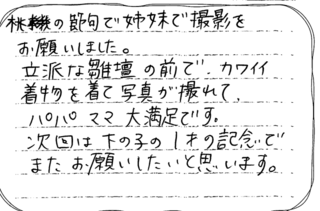 桃の節句で姉妹で撮影を
お願いしました。
立派な雛壇の前で、カワイイ
着物を着て写真が撮れて、
パパママ大満足です。
次回は下の子の1才の記念で
またお願いしたいと思います。